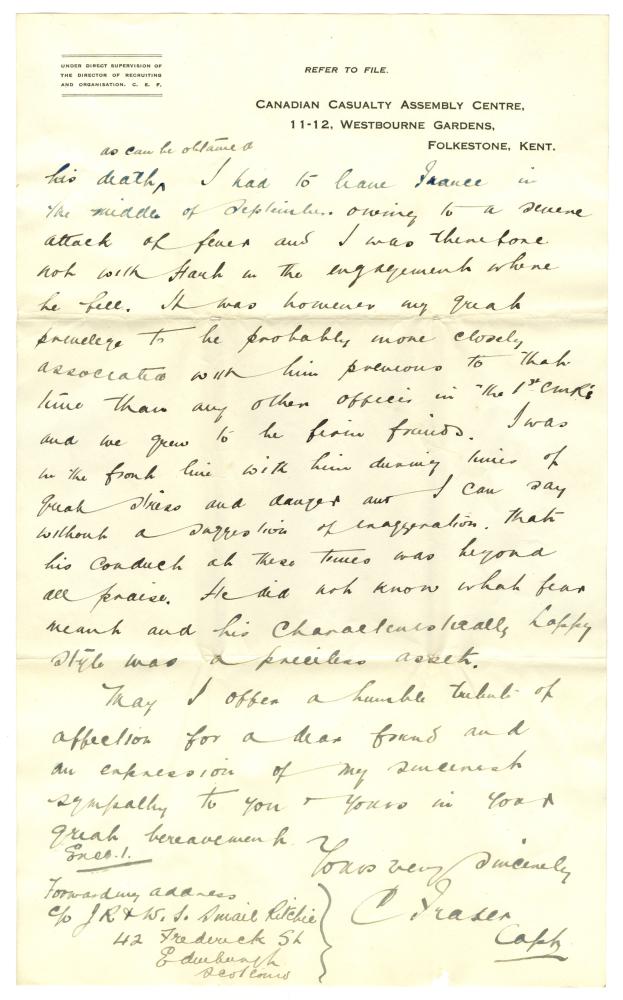 UNDER DIRECT SUPERVISION OF
THE DIRECTOR OF RECRUITING
AND ORGANISATION, C. E. F.
REFER TO FILE.
CANADIAN CASUALTY ASSEMBLY CENTRE,
11-12, WESTBOURNE GARDENS,
FOLKESTONE, KENT.
as can be obtained
his death, I had to leave France in
the middle of September owing to a severe
attack of fever and I was therefore
not with Hank in the engagement where
he fell. It was however my great
privelege to be probably more closely
associated with him previous to that
time than any other officer in "the 1st CMR's
and we grew to be firm friends. I was
in the front line with him during times of
great stress and danger and I can say
without a suggestion of exaggeration. that
his conduct at these times was beyond
all praise. He did not know what fear
meant and his characteristically happy
style was a priceless asset.
May I offer a humble tribute of
affection for a dear friend and
an expression of my sincerest
sympathy to you & yours in your
great bereavement.
Encl. 1.
Yours very sincerely
C Fraser
Capt
Forwarding address
c/o J R & W. S. Smail Ritchie
42 Frederick St
Edinburgh
Scotland